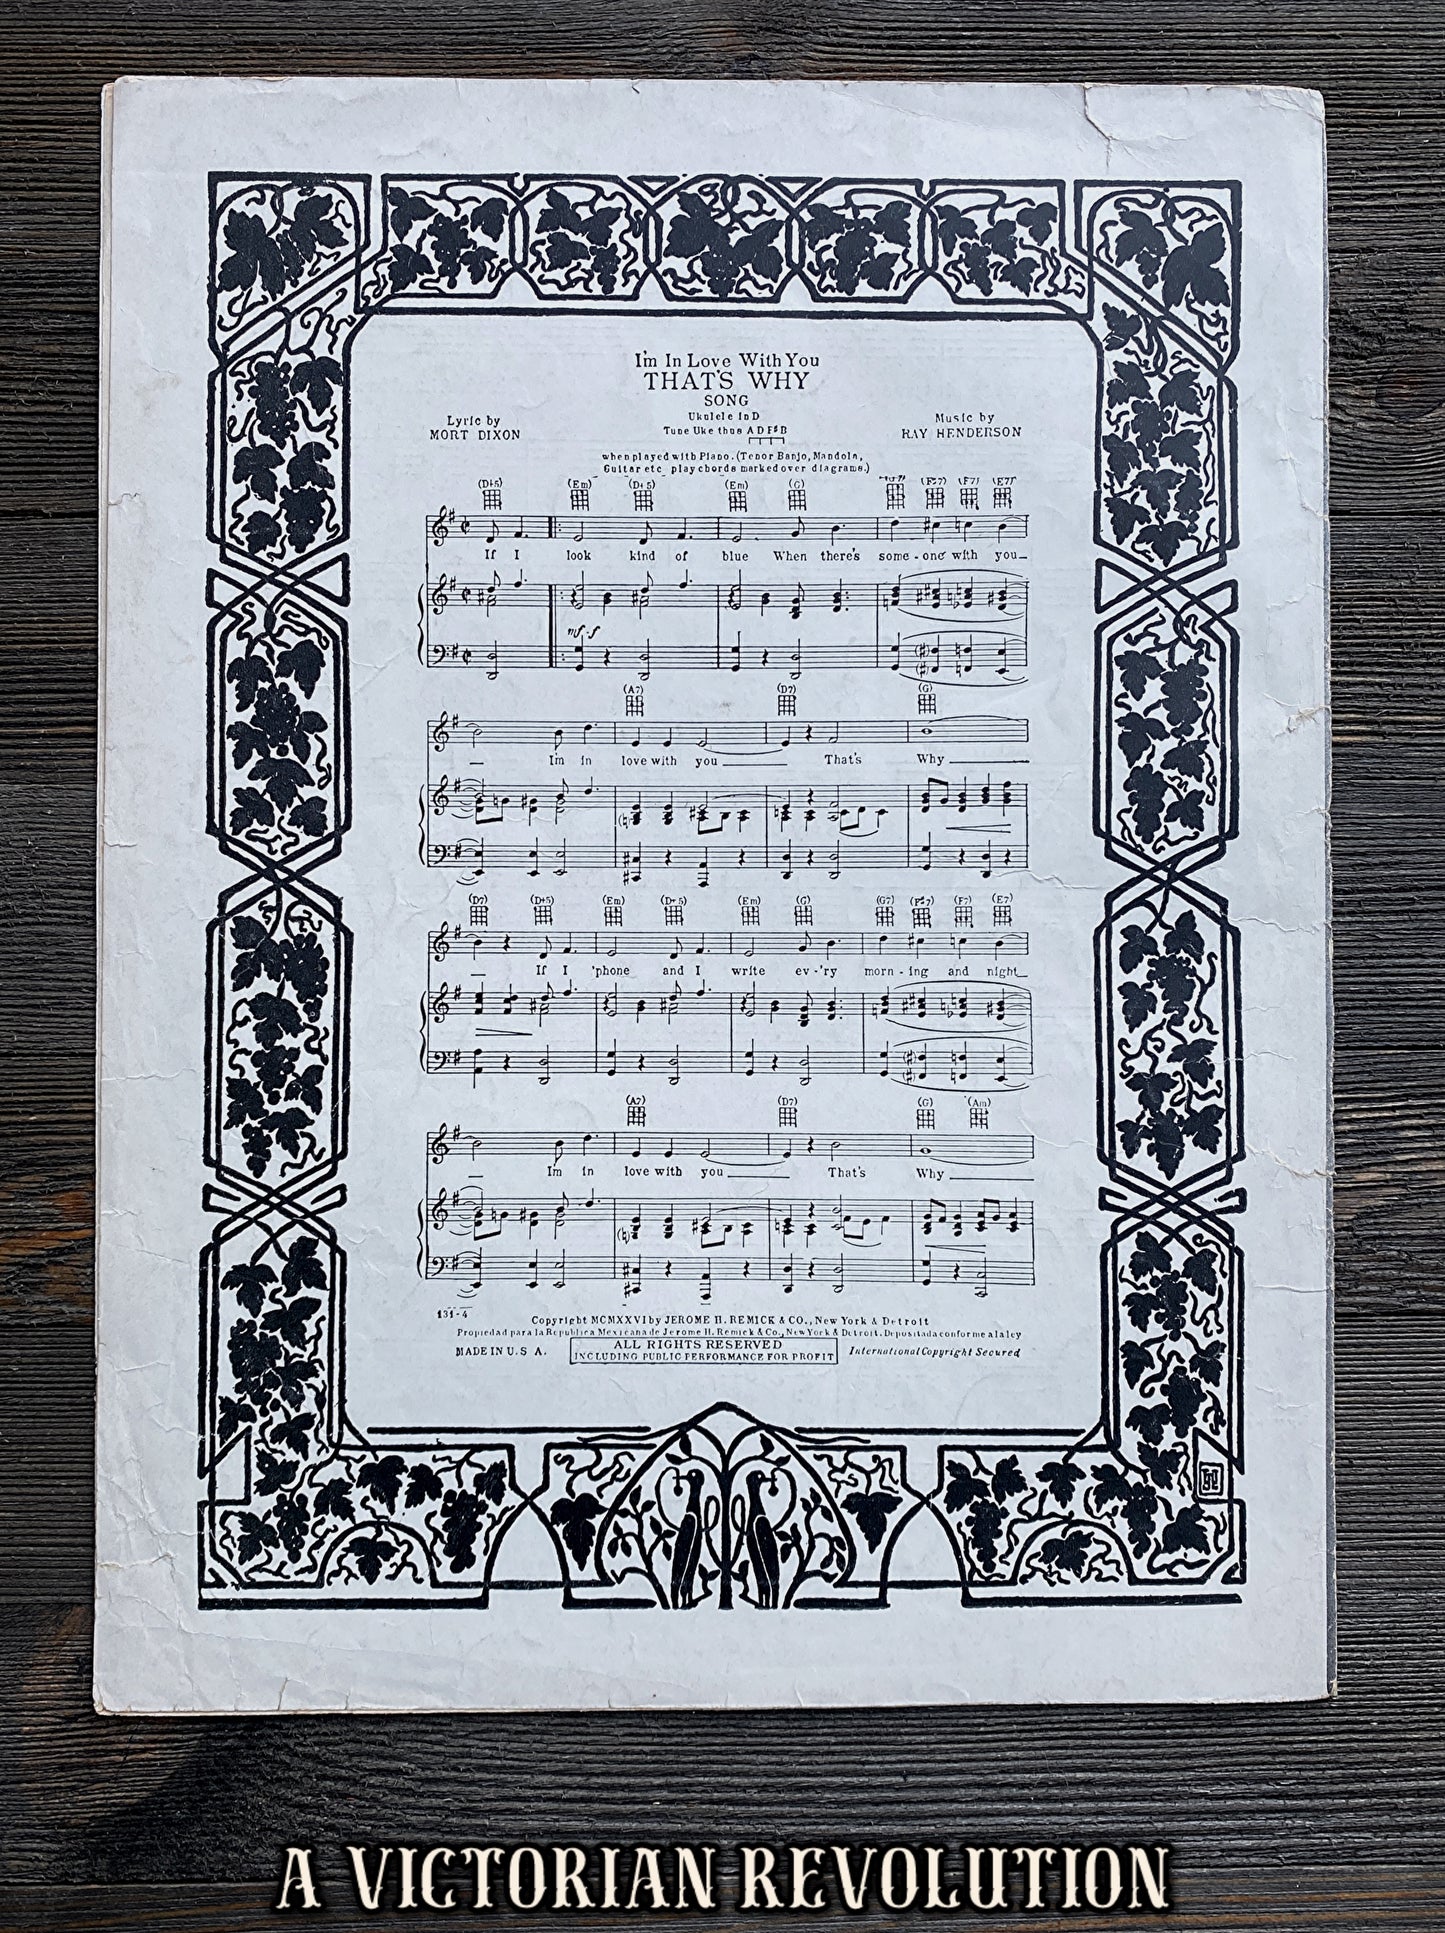 I'm In Love With You
THAT'S WHY
SONG
Ukulele in D
Tune Uke thus A D F♯ B
Lyric by
MORT DIXON
Music by
RAY HENDERSON
when played with Piano. (Tenor Banjo, Mandola,
Guitar etc play chords marked over diagrams.)
(D+5) (Em) (D+5) (Em) (G) (G7) (F♯7) (F7) (E7)
If I look kind of blue When there's some - one with you
mf-f
(A7) (D7) (G)
I'm in love with you That's Why
(D7) (D+5) (Em) (D+5) (Em) (G) (G7) (F♯7) (F7) (E7)
If I 'phone and I write ev-'ry morn - ing and night
(A7) (D7) (G) (Am)
I'm in love with you That's Why
131-4
Copyright MCMXXVI by JEROME H. REMICK & CO., New York & Detroit
Propiedad para la Republica Mexicana de Jerome H. Remick & Co., New York & Detroit. Depositada conforme a la ley
MADE IN U. S A.
ALL RIGHTS RESERVED
INCLUDING PUBLIC PERFORMANCE FOR PROFIT
International Copyright Secured
A VICTORIAN REVOLUTION